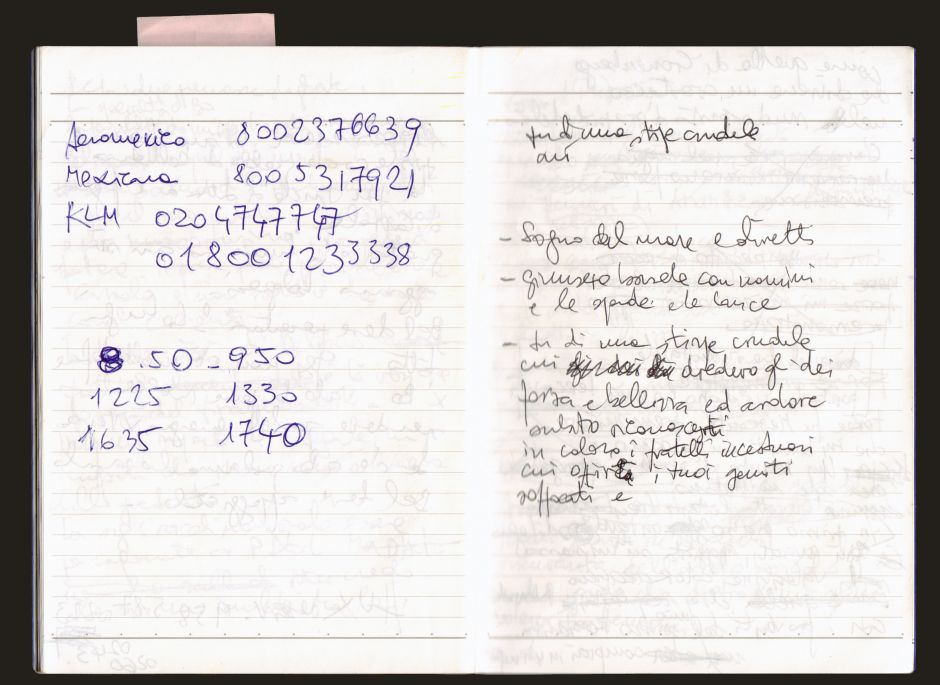 Aeromexico 8002376639
Mexicana 8005317921
KLM 0204747747
018001233338
8.50 - 950
1225 1330
1635 1740
fu di una stirpe crudele
cui
- Sogno del mare e
- giunsero barche con uomini
e le spade e le lance
- fu di una stirpe crudele
cui diedero gli dei
forza e bellezza ed ardore
subito riconoscesti
in coloro i fratelli incestuosi
cui offristi i tuoi gemiti
soffocati e